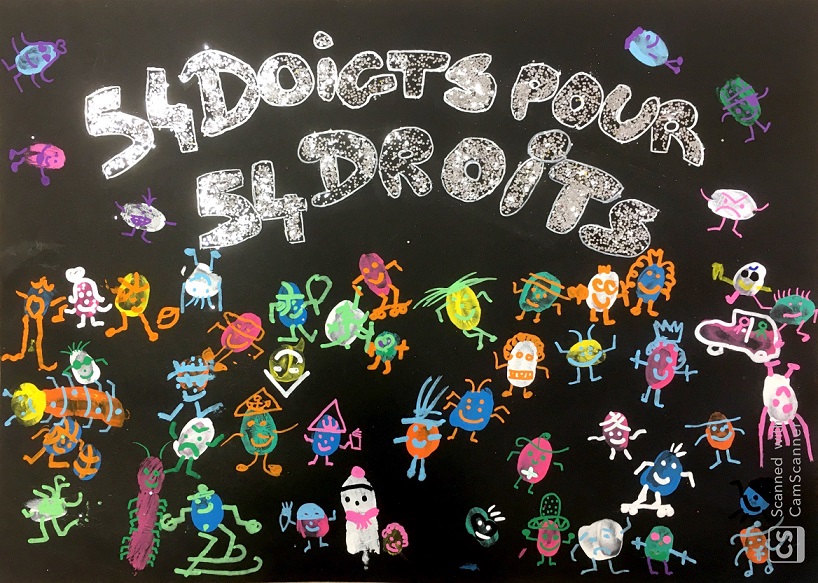 54 DOiGTS POUR
54 DROiTS
Scanned with
CamScanner
CS